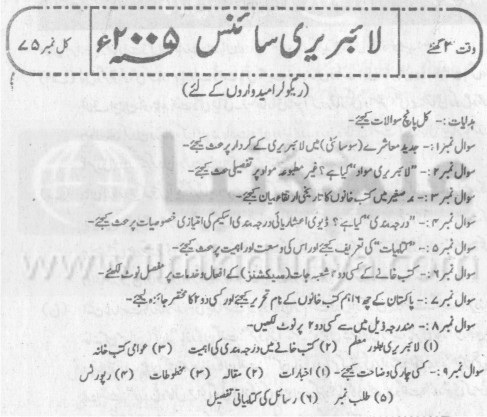 وقت ۳ گھنٹے
لائبریری سائنس ۲۰۰۵ء
کل نمبر ۷۵
(ریگولر امیدواروں کے لئے)
ہدایات :- کل پانچ سوالات کیجئے-
سوال نمبر ۱ :- جدید معاشرے (سوسائٹی) میں لائبریری کے کردار پر بحث کیجئے-
سوال نمبر ۲ :- "لائبریری مواد" کیا ہے؟ غیر مطبوعہ مواد پر تفصیلی بحث کیجئے-
سوال نمبر ۳ :- برصغیر میں کتب خانوں کا تاریخی ارتقاء بیان کیجئے-
سوال نمبر ۴ :- "درجہ بندی" کیا ہے؟ ڈیوی اعشاریائی درجہ بندی اسکیم کی امتیازی خصوصیات پر بحث کیجئے-
سوال نمبر ۵ :- "کتابیات" کی تعریف کیجئے اور اس کی وسعت اور اہمیت پر بحث کیجئے-
سوال نمبر ۶ :- کتب خانے کے کسی دو ۲ شعبہ جات (سیکشنز) کے افعال و خدمات پر مفصل نوٹ لکھئے-
سوال نمبر ۷ :- پاکستان کے چھ ۶ اہم کتب خانوں کے نام تحریر کیجئے اور کسی دو ۲ کا مختصر جائزہ لیجئے-
سوال نمبر ۸ :- مندرجہ ذیل میں سے کسی دو ۲ پر نوٹ لکھیں-
(۱) لائبریری بطور معلم (۲) کتب خانے میں درجہ بندی کی اہمیت (۳) عوامی کتب خانہ
سوال نمبر ۹ :- کسی چار کی وضاحت کیجئے- (۱) اخبارات (۲) مقالہ (۳) مخطوطات (۴) رپورٹس
(۵) طلب نمبر (۶) رسائل کی کتابیاتی تفصیل